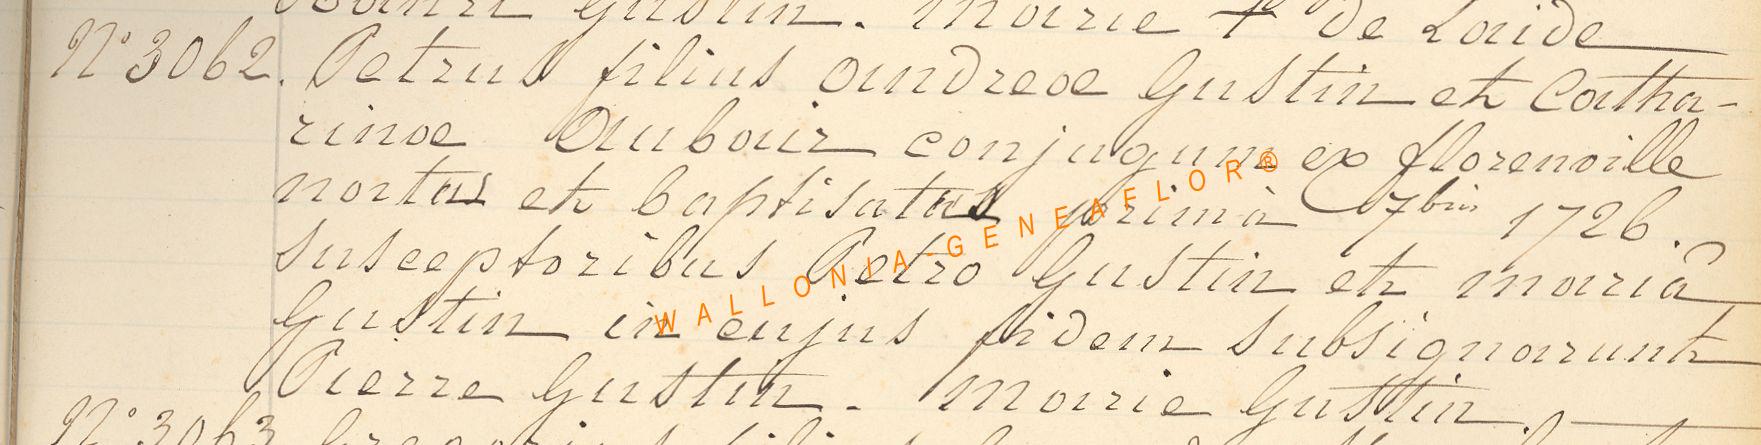 Gustin. Marie + de Laide
N° 3062. Petrus filius Andreae Gustin et Catha-
rinae Aubair conjugum ex florenville
nortus et baptisatus prima 7bris 1726.
susceptoribus Petro Gustin et mariâ
Gustin in cujus fidem subsignarunt
Pierre Gustin. Marie Gusttin.
N° 3063
WALLONIA-GENEAFLOR®